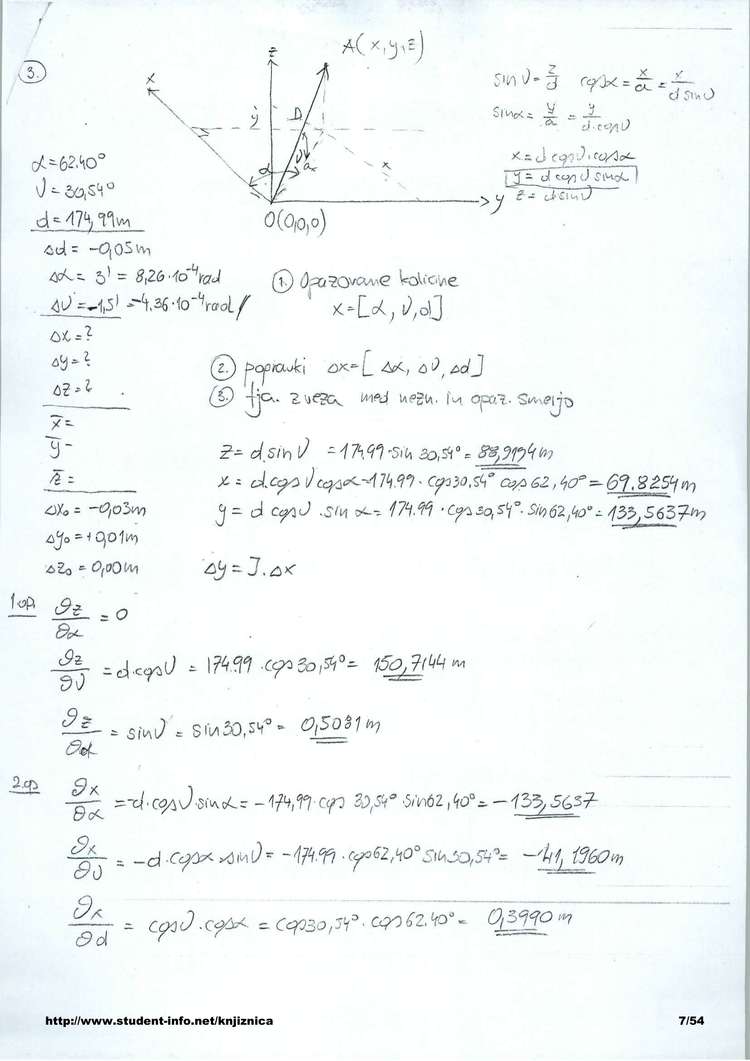 3.
A(x,y,z)
z
x
ẏ
D
α
ν
aₓ
x
y
O(0,0,0)
sin ν = z/d   cos α = x/a = x/(d sin ν)
sin α = y/a = y/(d·cos ν)
x = d cos ν · cos α
y = d cos ν sin α
z = d sin ν
α = 62.40°
ν = 30,54°
d = 174,99m
Δd = -0,05m
Δα = 3' = 8,26·10⁻⁴ rad
Δν = -1,5' = -4.36·10⁻⁴ rad
Δx = ?
Δy = ?
Δz = ?
x̄ =
ȳ -
z̄ =
Δx₀ = -0,03m
Δy₀ = +0,01m
Δz₀ = 0,00m
① Opazovane količine
x = [α, ν, d]
② popravki Δx = [Δα, Δν, Δd]
③ fja. zveza med nezn. in opaz. smerjo
z = d sin ν = 174.99·sin 30,54° = 88,9194m
x = d cos ν cos α = 174.99 · cos 30,54° cos 62,40° = 69.8254m
y = d cos ν . sin α = 174.99 · cos 30,54° · sin 62,40° = 133,5637m
Δy = J.Δx
1.op. ∂z/∂α = 0
∂z/∂ν = d·cos ν = 174.99 · cos 30,54° = 150,7144 m
∂z/∂d = sin ν = sin 30,54° = 0,5031 m
2.op ∂x/∂α = -d·cos ν·sin α = -174,99·cos 30,54°·sin 62,40° = -133,5637
∂x/∂ν = -d·cos α·sin ν = -174.99·cos 62,40° sin 30,54° = -41,1960m
∂x/∂d = cos ν·cos α = cos 30,54°·cos 62.40° = 0,3990 m
http://www.student-info.net/knjiznica
7/54